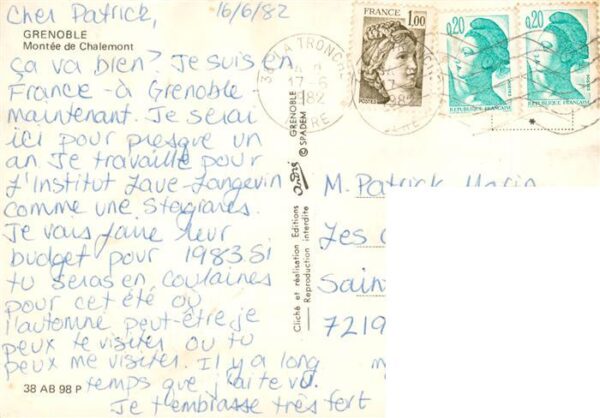 Cher Patrick,
16/6/82
GRENOBLE
Montée de Chalemont
ça va bien? Je suis en
France - à Grenoble
maintenant. Je serai
ici pour presque un
an Je travaille pour
l'Institut Laue-Langevin
comme une Stagiares
Je vais faire leur
budget pour 1983 Si
tu seras en
pour cet été ou
l'automne peut-être je
peux te visiter ou tu
peux me visiter. Il y a long
temps que j'ai te vu.
Je t'embrasse très fort
38 AB 98 P
GRENOBLE
© SPADEM
Cliché et réalisation Editions
Reproduction interdite
38 LA TRONCHE
17-6
1982
ISERE
FRANCE
1,00
POSTES
0,20
REPUBLIQUE FRANÇAISE
0,20
REPUBLIQUE FRANÇAISE
*
M. Patrick
Les
Sain
7219